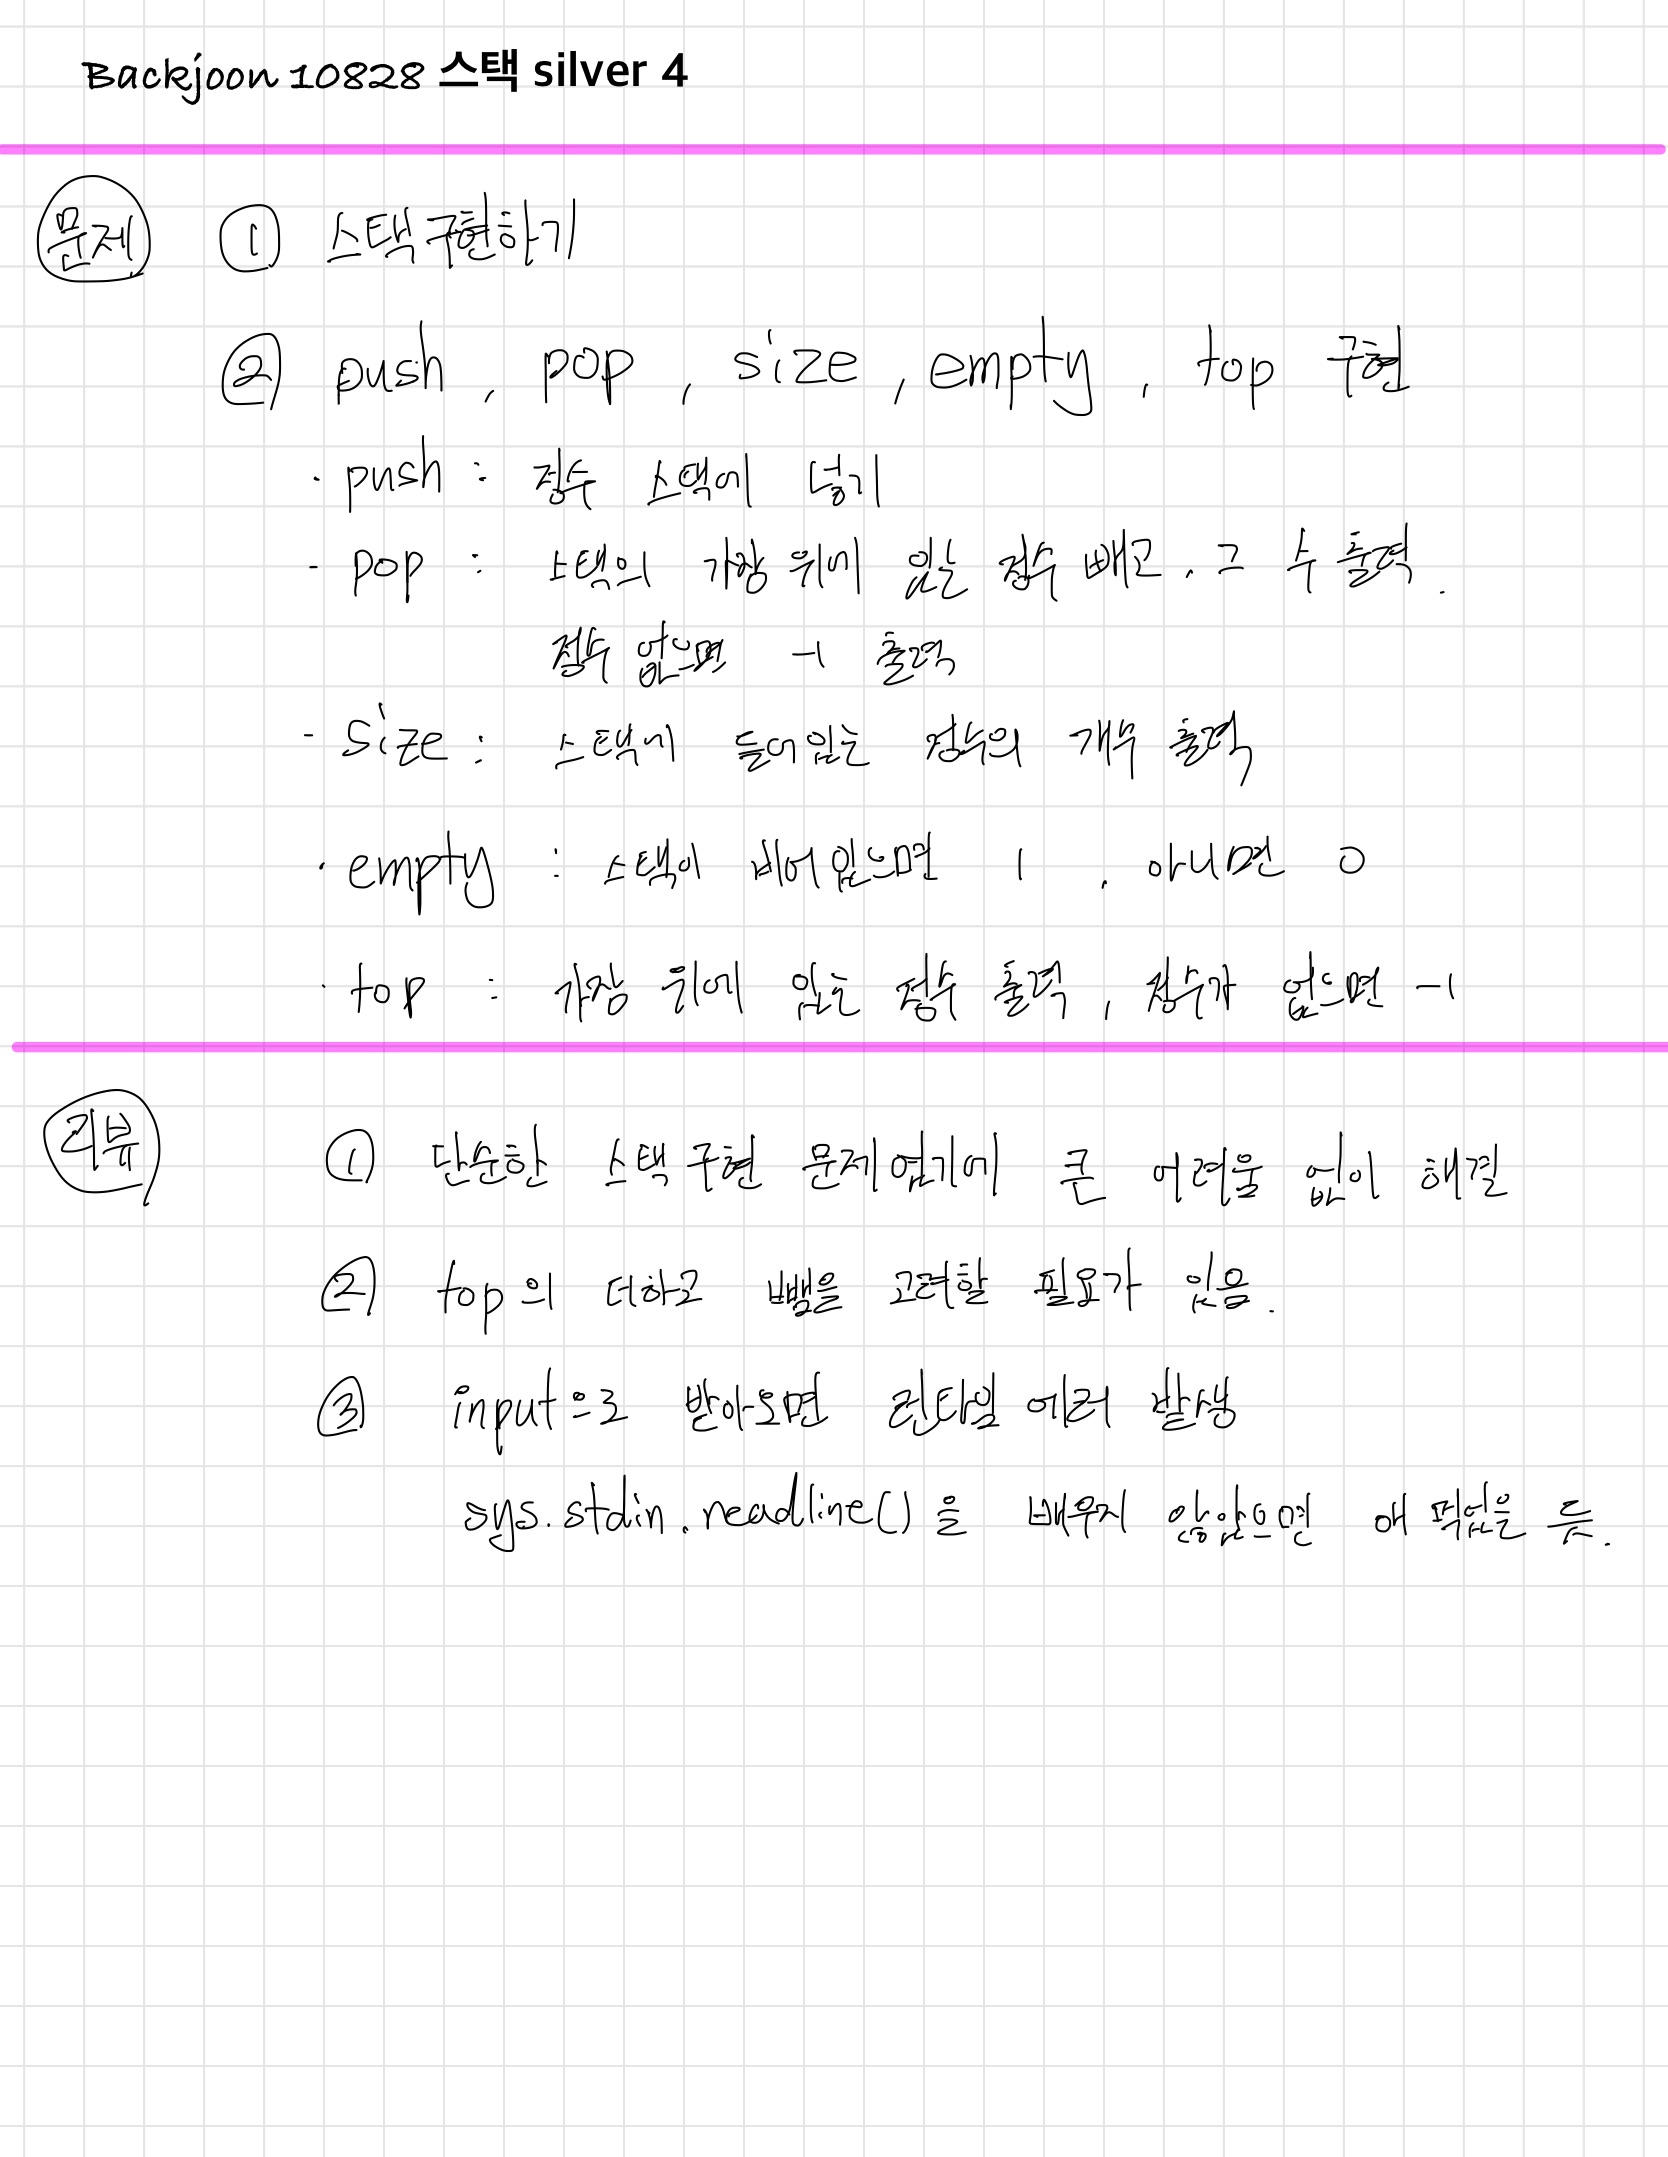 Backjoon 10828 스택 silver 4
문제 ① 스택 구현하기
② push, pop, size, empty, top 구현
· push : 정수 스택에 넣기
- pop : 스택의 가장 위에 있는 정수 빼고, 그 수 출력.
정수 없으면 -1 출력
- size : 스택에 들어있는 정수의 개수 출력
· empty : 스택이 비어있으면 1, 아니면 0
· top : 가장 위에 있는 정수 출력, 정수가 없으면 -1
리뷰 ① 단순한 스택 구현 문제였기에 큰 어려움 없이 해결
② top의 더하고 뺌을 고려할 필요가 있음.
③ input으로 받아오면 런타임 에러 발생
sys.stdin.readline()을 배우지 않았으면 애 먹었을 듯.